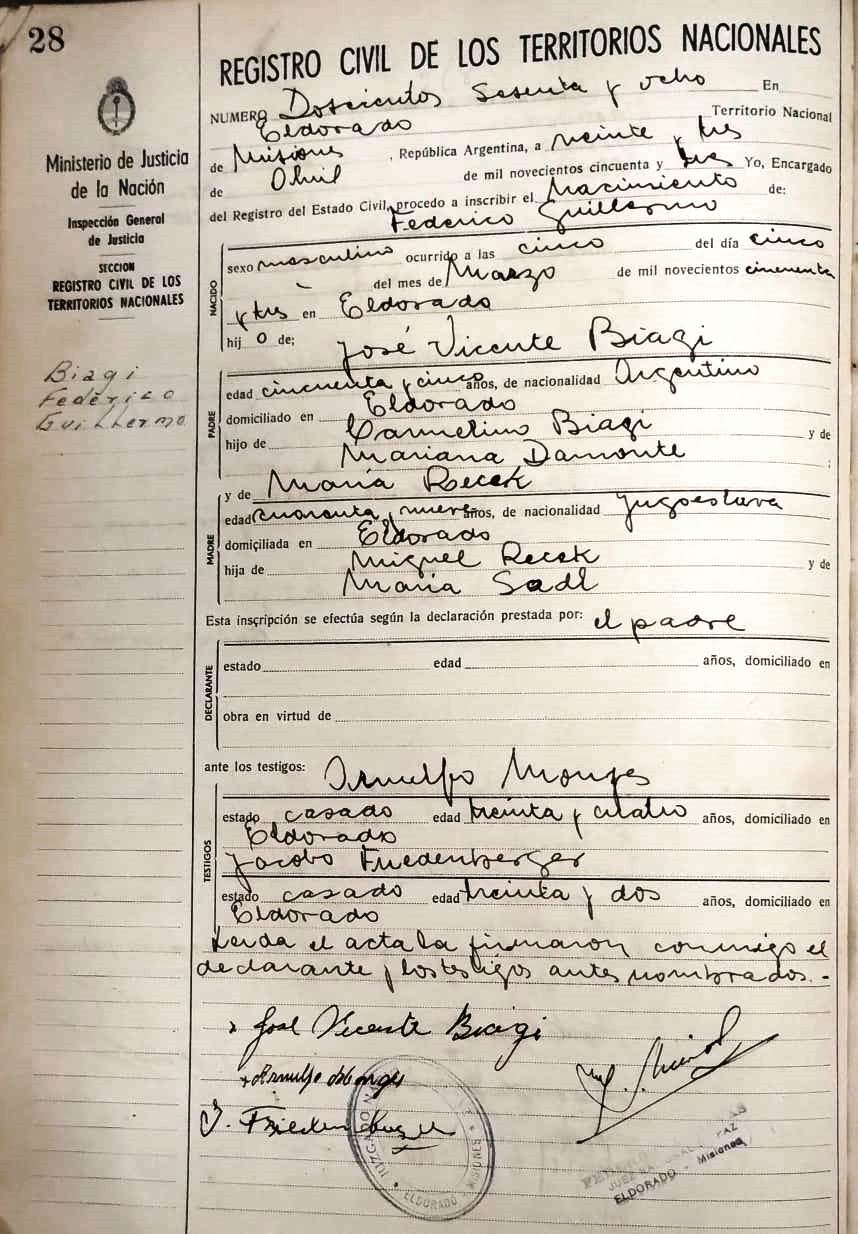 28
REGISTRO CIVIL DE LOS TERRITORIOS NACIONALES
NUMERO Doscientos Sesenta y ocho En
Eldorado Territorio Nacional
de Misiones, República Argentina, a veinte y tres
de Abril de mil novecientos cincuenta y tres Yo, Encargado
del Registro del Estado Civil, procedo a inscribir el Nacimiento de:
Federico Guillermo
Ministerio de Justicia
de la Nación
Inspección General
de Justicia
SECCION
REGISTRO CIVIL DE LOS
TERRITORIOS NACIONALES
Biagi
Federico
Guillermo
NACIDO
sexo masculino ocurrido a las cinco del día cinco
del mes de Marzo de mil novecientos cincuenta
y tres en Eldorado
hij o de; José Vicente Biagi
PADRE
edad cincuenta y cinco años, de nacionalidad Argentino
domiciliado en Eldorado
hijo de Carmelino Biagi y de
Mariana Damonte ;
y de María Recek
MADRE
edad cuarenta y nueve años, de nacionalidad Yugoeslava
domiciliada en Eldorado
hija de Miguel Recek y de
María Sadl
Esta inscripción se efectúa según la declaración prestada por: el padre
DECLARANTE
estado edad años, domiciliado en
obra en virtud de
ante los testigos: Arnulfo Monges
TESTIGOS
estado casado edad treinta y cuatro años, domiciliado en
Eldorado
Jacobo Friedenberger
estado casado edad treinta y dos años, domiciliado en
Eldorado
Leida el acta la firmaron conmigo el
declarante y los testigos antes nombrados.-
José Vicente Biagi
Arnulfo Monges
J. Friedenberger
JUZGADO
ELDORADO - MISIONES
JUEZ PAZ
ELDORADO - Misiones